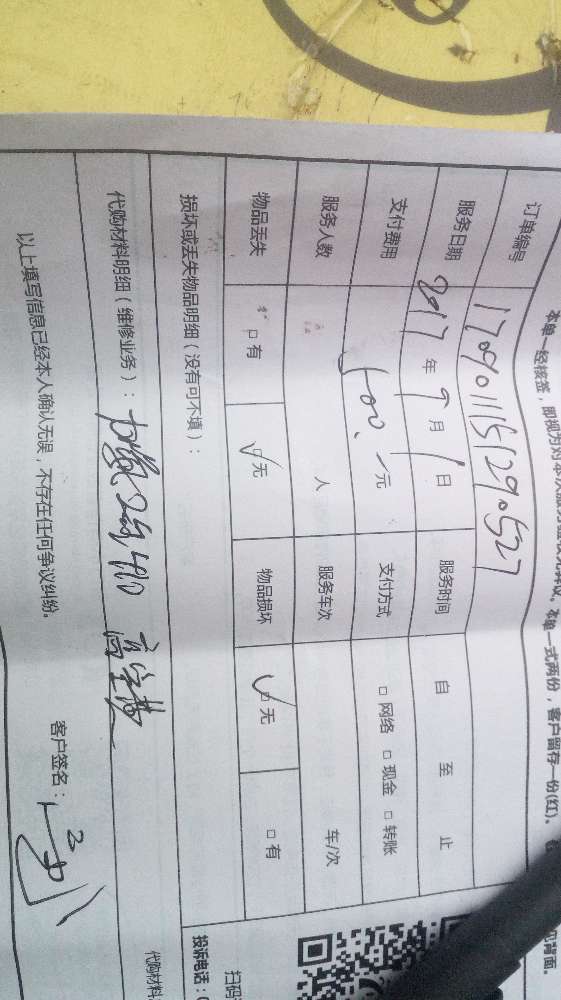 本单一经核签，即视为对本次服务
本单一式两份，客户留存一份(红)。
见背面。
订单编号 1709011151290527
服务日期 2017 年 9 月 1 日 服务时间 自 至 止
支付费用 500 元 支付方式 □ 网络 □ 现金 □ 转账
服务人数 人 服务车次 车/次
物品丢失 □ 有 ☑ 无 物品损坏 ☑ 无 □ 有
损坏或丢失物品明细（没有可不填）：
代购材料明细（维修业务）： 加氟 410 高空费
以上填写信息已经本人确认无误，不存在任何争议纠纷。
客户签名：
扫码
投诉电话：
代购材料